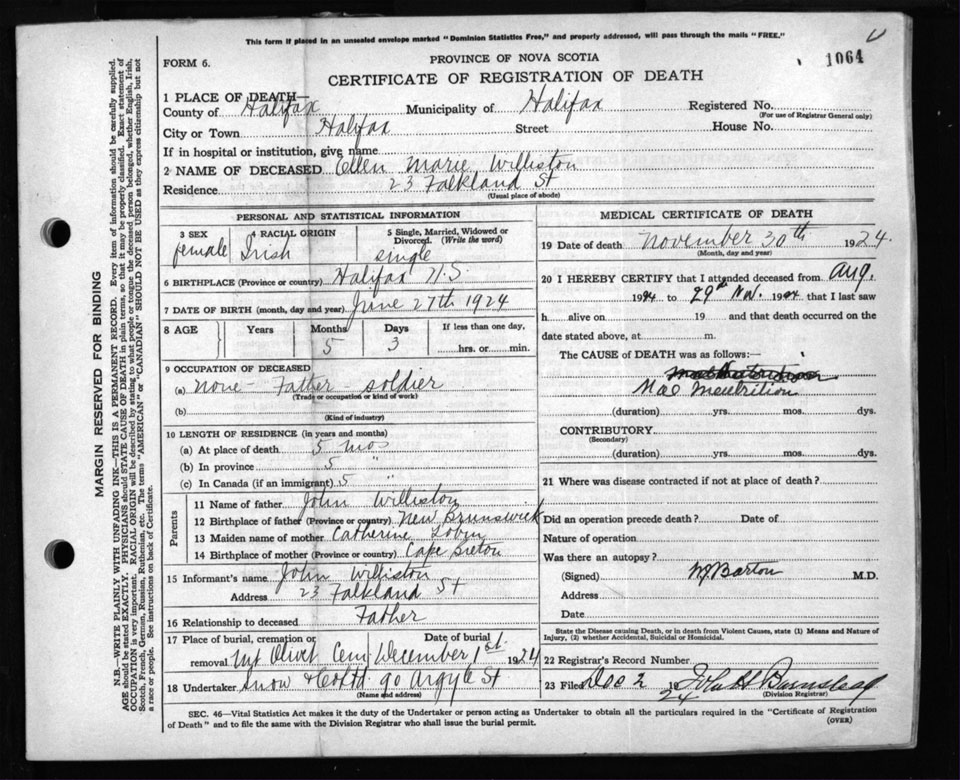 This form if placed in an unsealed envelope marked "Dominion Statistics Free," and properly addressed, will pass through the mails "FREE."
FORM 6.
PROVINCE OF NOVA SCOTIA
1064
CERTIFICATE OF REGISTRATION OF DEATH
1 PLACE OF DEATH—
County of Halifax Municipality of Halifax Registered No.
(For use of Registrar General only)
City or Town Halifax Street House No.
If in hospital or institution, give name
2 NAME OF DECEASED Ellen Marie Williston
Residence 23 Falkland St
(Usual place of abode)
PERSONAL AND STATISTICAL INFORMATION
3 SEX 4 RACIAL ORIGIN 5 Single, Married, Widowed or Divorced. (Write the word)
female Irish single
6 BIRTHPLACE (Province or country) Halifax N.S.
7 DATE OF BIRTH (month, day and year) June 27th 1924
8 AGE Years Months Days If less than one day,
5 3 hrs. or min.
9 OCCUPATION OF DECEASED
(a) none - Father - soldier
(Trade or occupation or kind of work)
(b)
(Kind of industry)
10 LENGTH OF RESIDENCE (in years and months)
(a) At place of death 5 mos
(b) In province 5 "
(c) In Canada (if an immigrant) 5 "
Parents
11 Name of father John Williston
12 Birthplace of father (Province or country) New Brunswick
13 Maiden name of mother Catherine
14 Birthplace of mother (Province or country) Cape Breton
15 Informant's name John Williston
Address 23 Falkland St
16 Relationship to deceased Father
17 Place of burial, cremation or removal Mt Olivet Cem Date of burial December 1st 1924
18 Undertaker Snow & Co Ltd 90 Argyle St
(Name and address)
MEDICAL CERTIFICATE OF DEATH
19 Date of death November 30th 1924.
(Month, day and year)
20 I HEREBY CERTIFY that I attended deceased from Aug,
1924 to 29th Nov. 1924 that I last saw
h alive on 19 and that death occurred on
date stated above, at m.
The CAUSE OF DEATH was as follows:—
Mal Meutrition
(duration) yrs. mos. dys.
CONTRIBUTORY
(Secondary)
(duration) yrs. mos. dys.
21 Where was disease contracted if not at place of death?
Did an operation precede death? Date of
Nature of operation
Was there an autopsy?
(Signed) Barton M.D.
Address
Date
State the Disease causing Death, or in death from Violent Causes, state (1) Means and Nature of Injury, (2) whether Accidental, Suicidal or Homicidal.
22 Registrar's Record Number
23 Filed Dec 2 1924 John H Barnstead
(Division Registrar)
SEC. 46—Vital Statistics Act makes it the duty of the Undertaker or person acting as Undertaker to obtain all the particulars required in the "Certificate of Registration
of Death" and to file the same with the Division Registrar who shall issue the burial permit.
(OVER)
MARGIN RESERVED FOR BINDING
N.B.—WRITE PLAINLY WITH UNFADING INK—THIS IS A PERMANENT RECORD. Every item of information should be carefully supplied.
AGE should be stated EXACTLY. PHYSICIANS should STATE CAUSE OF DEATH in plain terms, so that it may be properly classified. Exact statement of
OCCUPATION is very important. RACIAL ORIGIN will be described by stating to what people or tongue the deceased person belonged, whether English, Irish,
Scotch, French, German, Russian, Ruthenian, etc. The terms "AMERICAN" or "CANADIAN" SHOULD NOT BE USED as they express citizenship but not
a race or people. See instructions on back of Certificate.